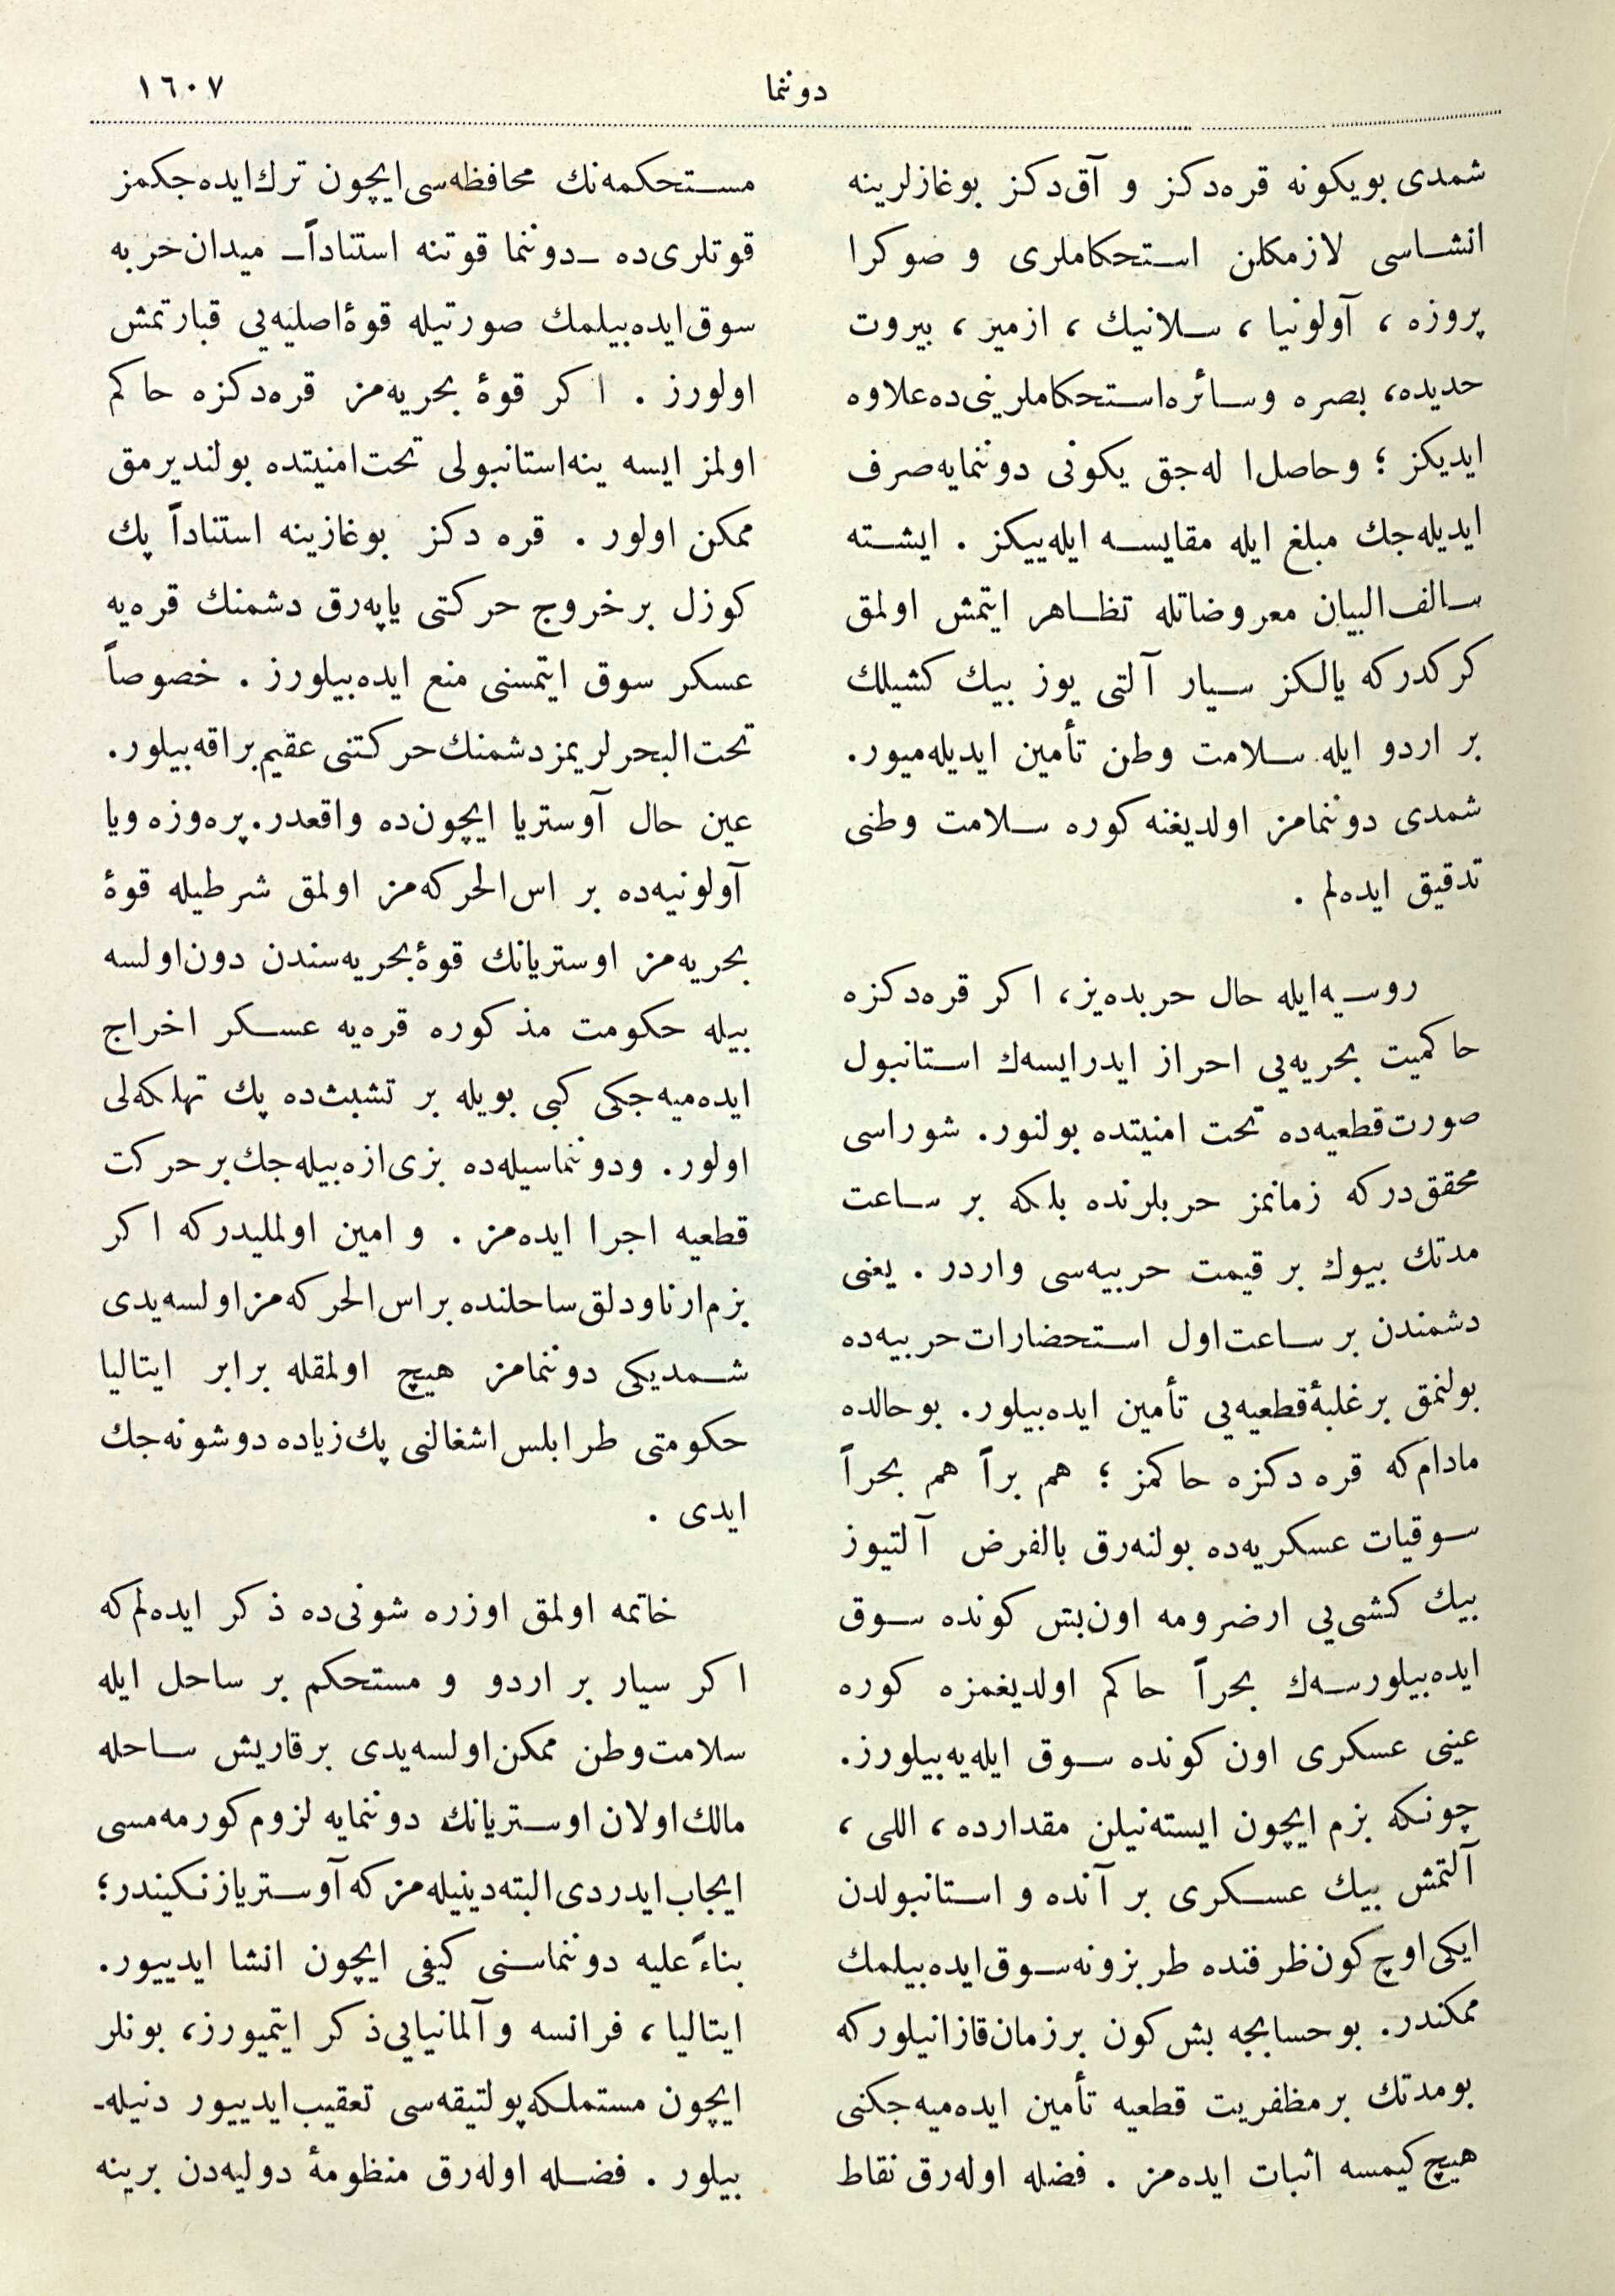 دوننما
١٦٠٧
شمدی بویكونه قره‌دكز و آق‌دكز بوغازلرینه
انشاسی لازمكلن استحكاملری و صوكرا
پروزه ، آولونیا ، سلانیك ، ازمیر ، بیروت
حدیده، بصره وسائره‌استحكاملرینی‌ده‌علاوه
ایدیكز ؛ وحاصل‌ا له‌جق یكونی دوننمایه‌صرف
ایدیله‌جك مبلغ ایله مقایسه ایله‌ییكز . ایشته
سالف‌البیان معروضاتله تظاهر ایتمش اولمق
كركدركه یالكز سیار آلتی یوز بیك كشیلك
بر اردو ایله سلامت وطن تأمین ایدیله‌میور.
شمدی دوننمامز اولدیغنه كوره سلامت وطنی
تدقیق ایده‌لم .
روسیه‌ایله حال حربده‌یز، اكر قره‌دكزه
حاكمیت بحریه‌یی احراز ایدرایسه‌ك استانبول
صورت‌قطعیه‌ده تحت امنیتده بولنور. شوراسی
محقق‌دركه زمانمز حربلرنده بلكه بر ساعت
مدتك بیوك بر قیمت حربیه‌سی واردر . یعنی
دشمندن بر ساعت‌اول استحضارات‌حربیه‌ده
بولنمق بر غلبهٔ‌قطعیه‌یی تأمین ایده‌بیلور. بوحالده
مادام‌كه قره دكزه حاكمز ؛ هم براً هم بحراً
سوقیات عسكریه‌ده بولنه‌رق بالفرض آلتیوز
بیك كشی‌یی ارضرومه اون‌بش كونده سوق
ایده‌بیلورسه‌ك بحراً حاكم اولدیغمزه كوره
عینی عسكری اون كونده سوق ایله‌یه‌بیلورز.
چونكه بزم ایچون ایسته‌نیلن مقدارده ، اللی ،
آلتمش بیك عسكری بر آنده و استانبولدن
ایكی‌اوچ‌كون‌ظرفنده طربزونه‌سوق‌ایده‌بیلمك
ممكندر. بوحسابجه بش كون برزمان‌قازانیلوركه
بومدتك برمظفریت قطعیه تأمین ایده‌میه‌جكنی
هیچ‌كیمسه اثبات ایده‌مز . فضله اوله‌رق نقاط
مستحكمه‌نك محافظه‌سی‌ایچون ترك‌ایده‌جكمز
قوتلری‌ده ــ‌دوننما قوتنه استناداً‌ــ میدان‌حربه
سوق‌ایده‌بیلمك صورتیله قوۀ‌اصلیه‌یی قبارتمش
اولورز . اكر قوۀ بحریه‌مز قره‌دكزه حاكم
اولمز ایسه ینه‌استانبولی تحت‌امنیتده بولندیرمق
ممكن اولور . قره دكز بوغازینه استناداً پك
كوزل برخروج حركتی یاپه‌رق دشمنك قره‌یه
عسكر سوق ایتمسنی منع ایده‌بیلورز . خصوصاً
تحت‌البحرلریمزدشمنك‌حركتنی‌عقیم‌براقه‌بیلور.
عین حال آوستریا ایچون‌ده واقعدر.پره‌وزه ویا
آولونیه‌ده بر اس‌الحركه‌مز اولمق شرطیله قوۀ
بحریه‌مز اوستریانك قوۀ‌بحریه‌سندن دون‌اولسه
بیله حكومت مذكوره قره‌یه عسكر اخراج
ایده‌میه‌جكی كبی بویله بر تشبث‌ده پك تهلكه‌لی
اولور. ودوننماسیله‌ده بزی‌ازه‌بیله‌جك‌برحركت
قطعیه اجرا ایده‌مز . و امین اولملیدركه اكر
بزم‌ارناودلق‌ساحلنده براس‌الحركه‌مز‌اولسه‌یدی
شمدیكی دوننمامز هیچ اولمقله برابر ایتالیا
حكومتی طرابلس‌اشغالنی پك‌زیاده‌دوشونه‌جك
ایدی .
خاتمه اولمق اوزره شونی‌ده ذكر ایده‌لم‌كه
اكر سیار بر اردو و مستحكم بر ساحل ایله
سلامت‌وطن ممكن‌اولسه‌یدی برقاریش ساحله
مالك‌اولان‌اوستریانك دوننمایه لزوم‌كورمه‌مسی
ایجاب‌ایدردی‌البته‌دینیله‌مزكه‌آوستریازنكیندر؛
بناءً علیه دوننماسنی كیفی ایچون انشا ایدییور.
ایتالیا ، فرانسه وآلمانیایی‌ذكر ایتمیورز، بونلر
ایچون مستملكه‌پولتیقه‌سی تعقیب‌ایدییور دنیله‌ـ
بیلور . فضله اوله‌رق منظومۀ دولیه‌دن برینه